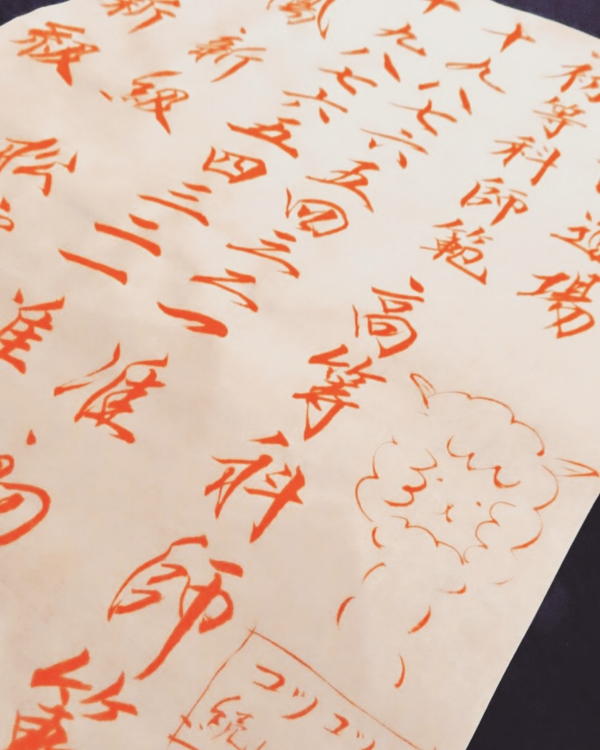 道場
初等科師範高等科師
十九八七六五四三二一准
十九八七六五四三二一準
新級
新
コツコツ
続